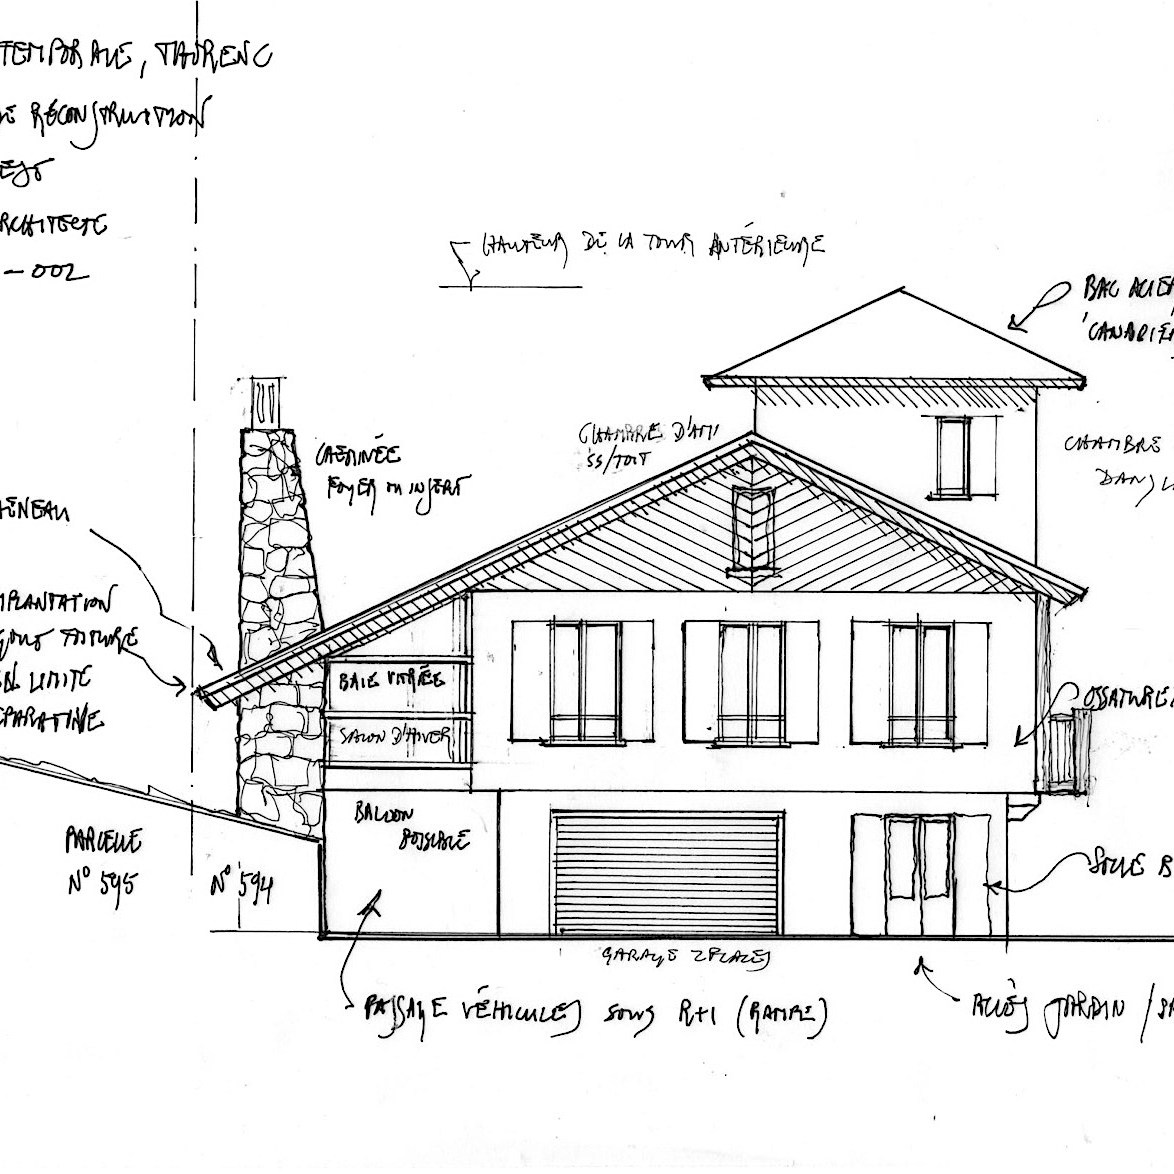 TEMPORALE, TAURENC
DE RÉCONSTRUCTION
RCHITECTE
- 002
HAUTEUR DE LA TOUR ANTÉRIEURE
BAC ACIER
'CANADIEN
CHAMBRE D'AMI
SS/TOIT
CHEMINÉE
FOYER OU INSERT
CHAMBRE
DANS L
HÉNEAU
MPLANTATION
TOITURE
LIMITE
ÉPARATIVE
BAIE VITRÉE
SALON D'HIVER
OSSATURE
BALCON
POSSIBLE
PARCELLE
N° 595
N° 594
SOCLE B
GARAGE 2 PLACES
PASSAGE VÉHICULES SOUS R+1 (RAMPE)
ACCÈS JARDIN /